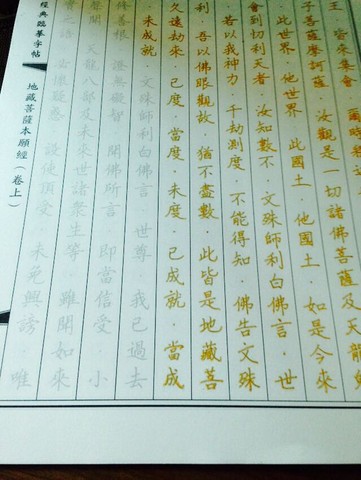 王·皆來集會·爾時釋迦
子菩薩摩訶薩·汝觀是一切諸佛菩薩及天龍
·此世界·他世界·此國土·他國土·如是今來
會到忉利天者·汝知數不·文殊師利白佛言·世
·若以我神力·千劫測度·不能得知·佛告文殊
利·吾以佛眼觀故·猶不盡數·此皆是地藏菩
久遠劫來·已度·當度·未度·已成就·當成
·未成就·文殊師利白佛言·世尊·我已過去
修善根·證無礙智·聞佛所言·即當信受·小
聲聞·天龍八部及未來世諸衆生等·雖聞如來
實之語·必懷疑惑·設使頂受·未免興謗·唯
經典臨摹字帖
地藏菩薩本願經(卷上)